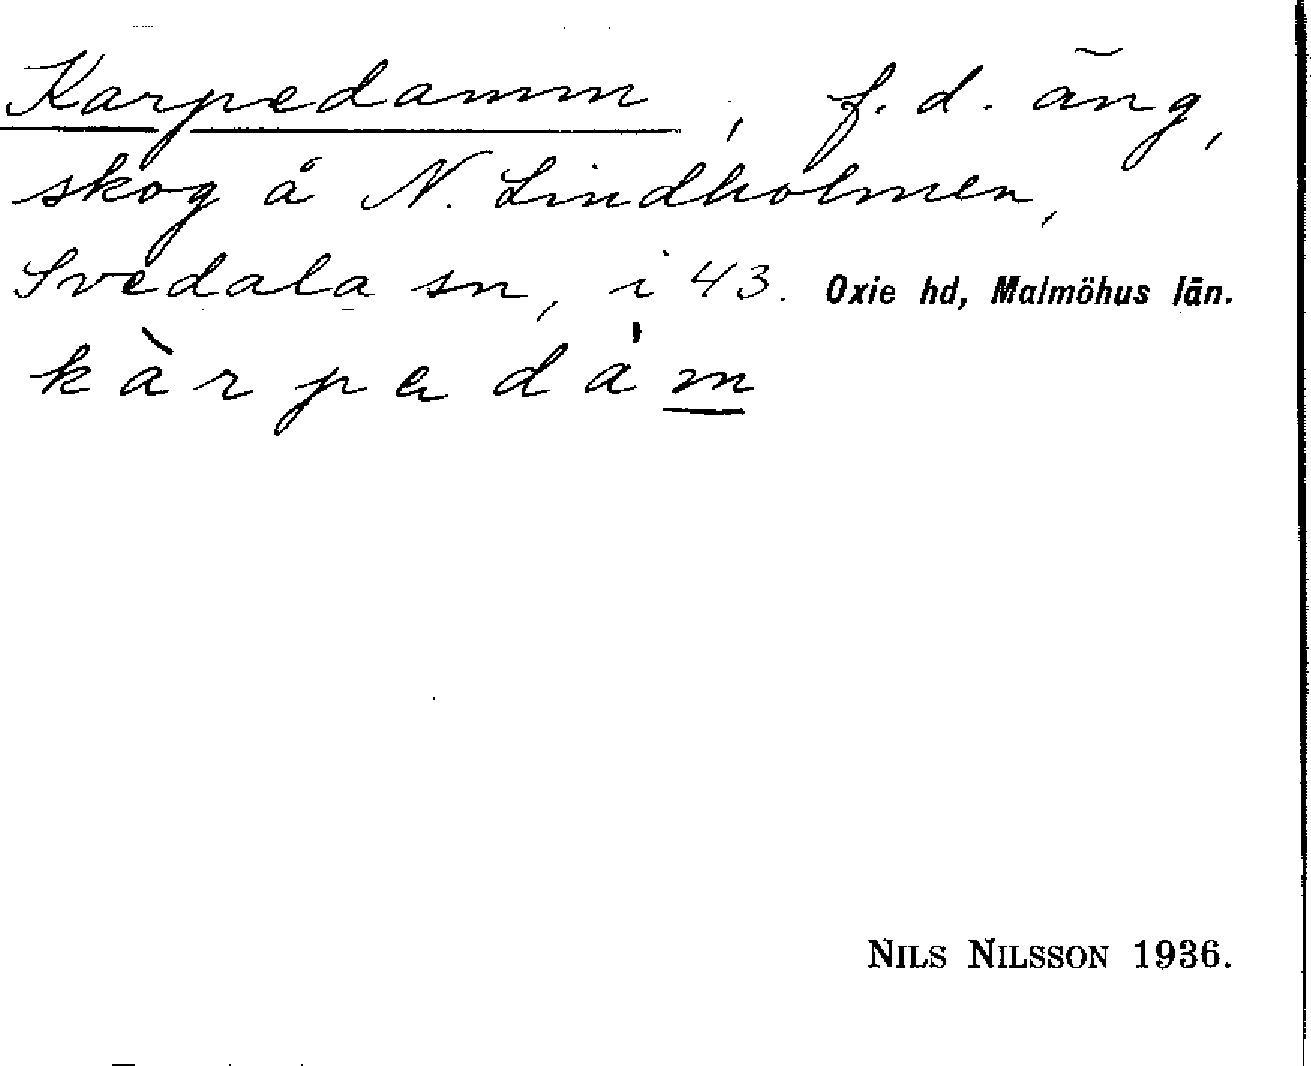 Karpedamm, f. d. äng,
skog å N. Lindholmen,
Svedala sn, i 43. Oxie hd, Malmöhus län.
kàrpadám
NILS NILSSON 1936.